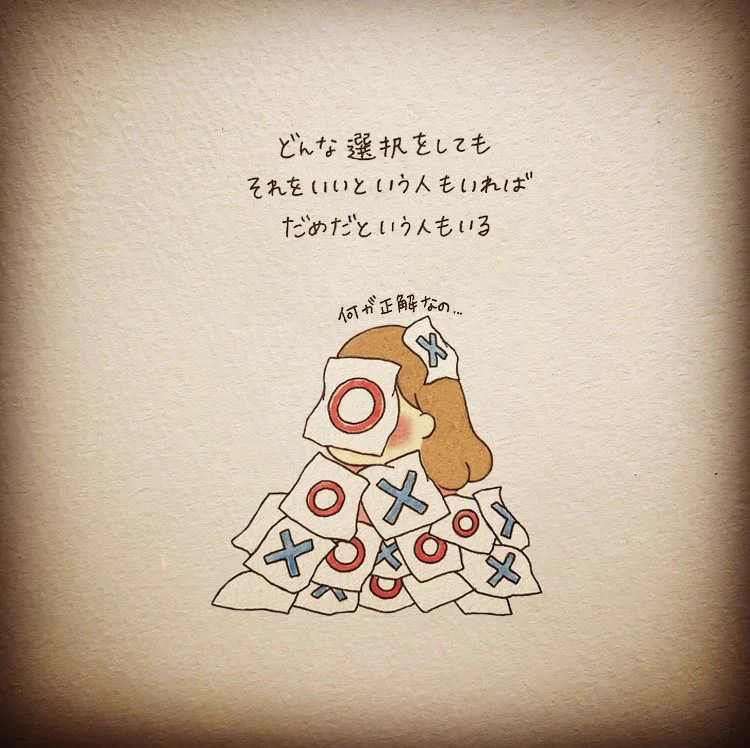 どんな選択をしても
それをいいという人もいれば
だめだという人もいる
何が正解なの…